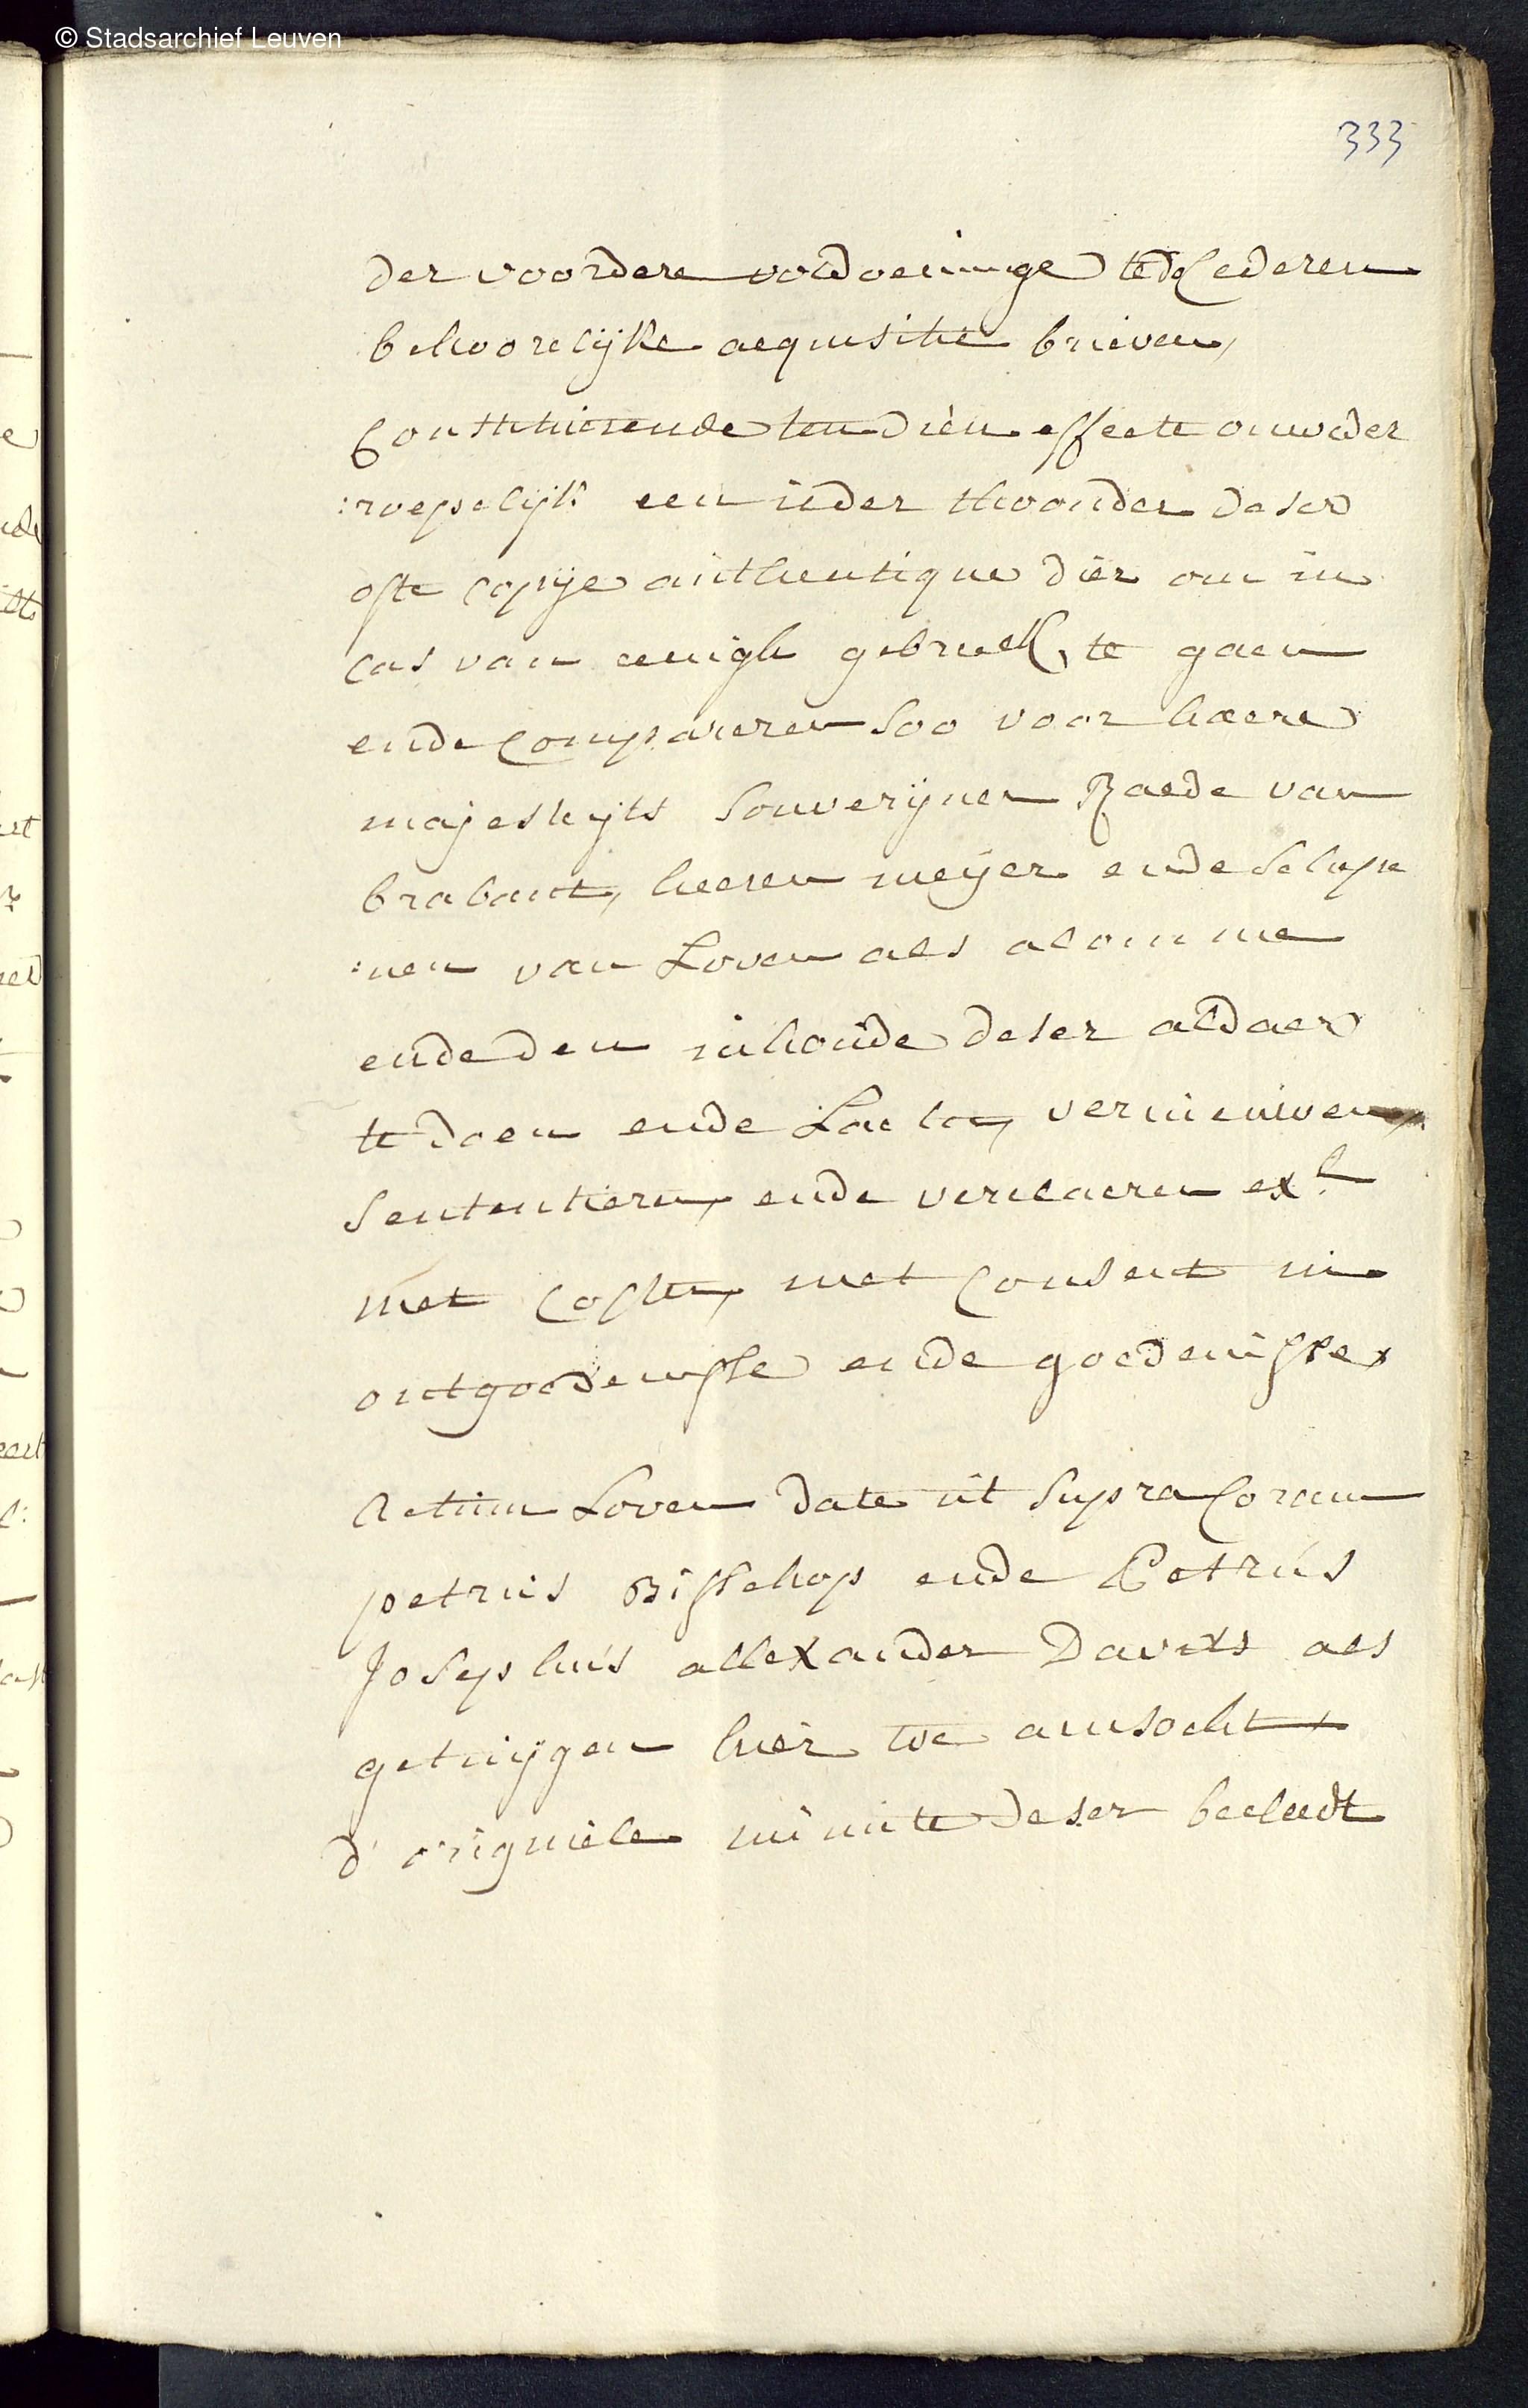 © Stadsarchief Leuven
333
der voordere voldoeninge te
behoorelijke aequisitie brieven,
Constituerende ten dien effecte onweder
:roepelijk een ieder thoonder deser
ofte copije authentique dier om in
cas van eenigh gebreck te gaen
ende Compareren soo voor haere
majesteyts Souverijnen Raede van
brabant, heeren meijer ende schepe
:nen van Loven als alomme
ende den inhoude deser aldaer
te doen ende Laeten, vernieuwen,
Sententieren, ende verclaeren exl
met costen, met Consent in
ontgoedenisse ende goedenisse
Actum Loven date ut supra Coram
petrus Bisschop ende Petrus
Josephus allexander Davits als
getuijgen hier toe aensocht
d'originele minute deser becleedt